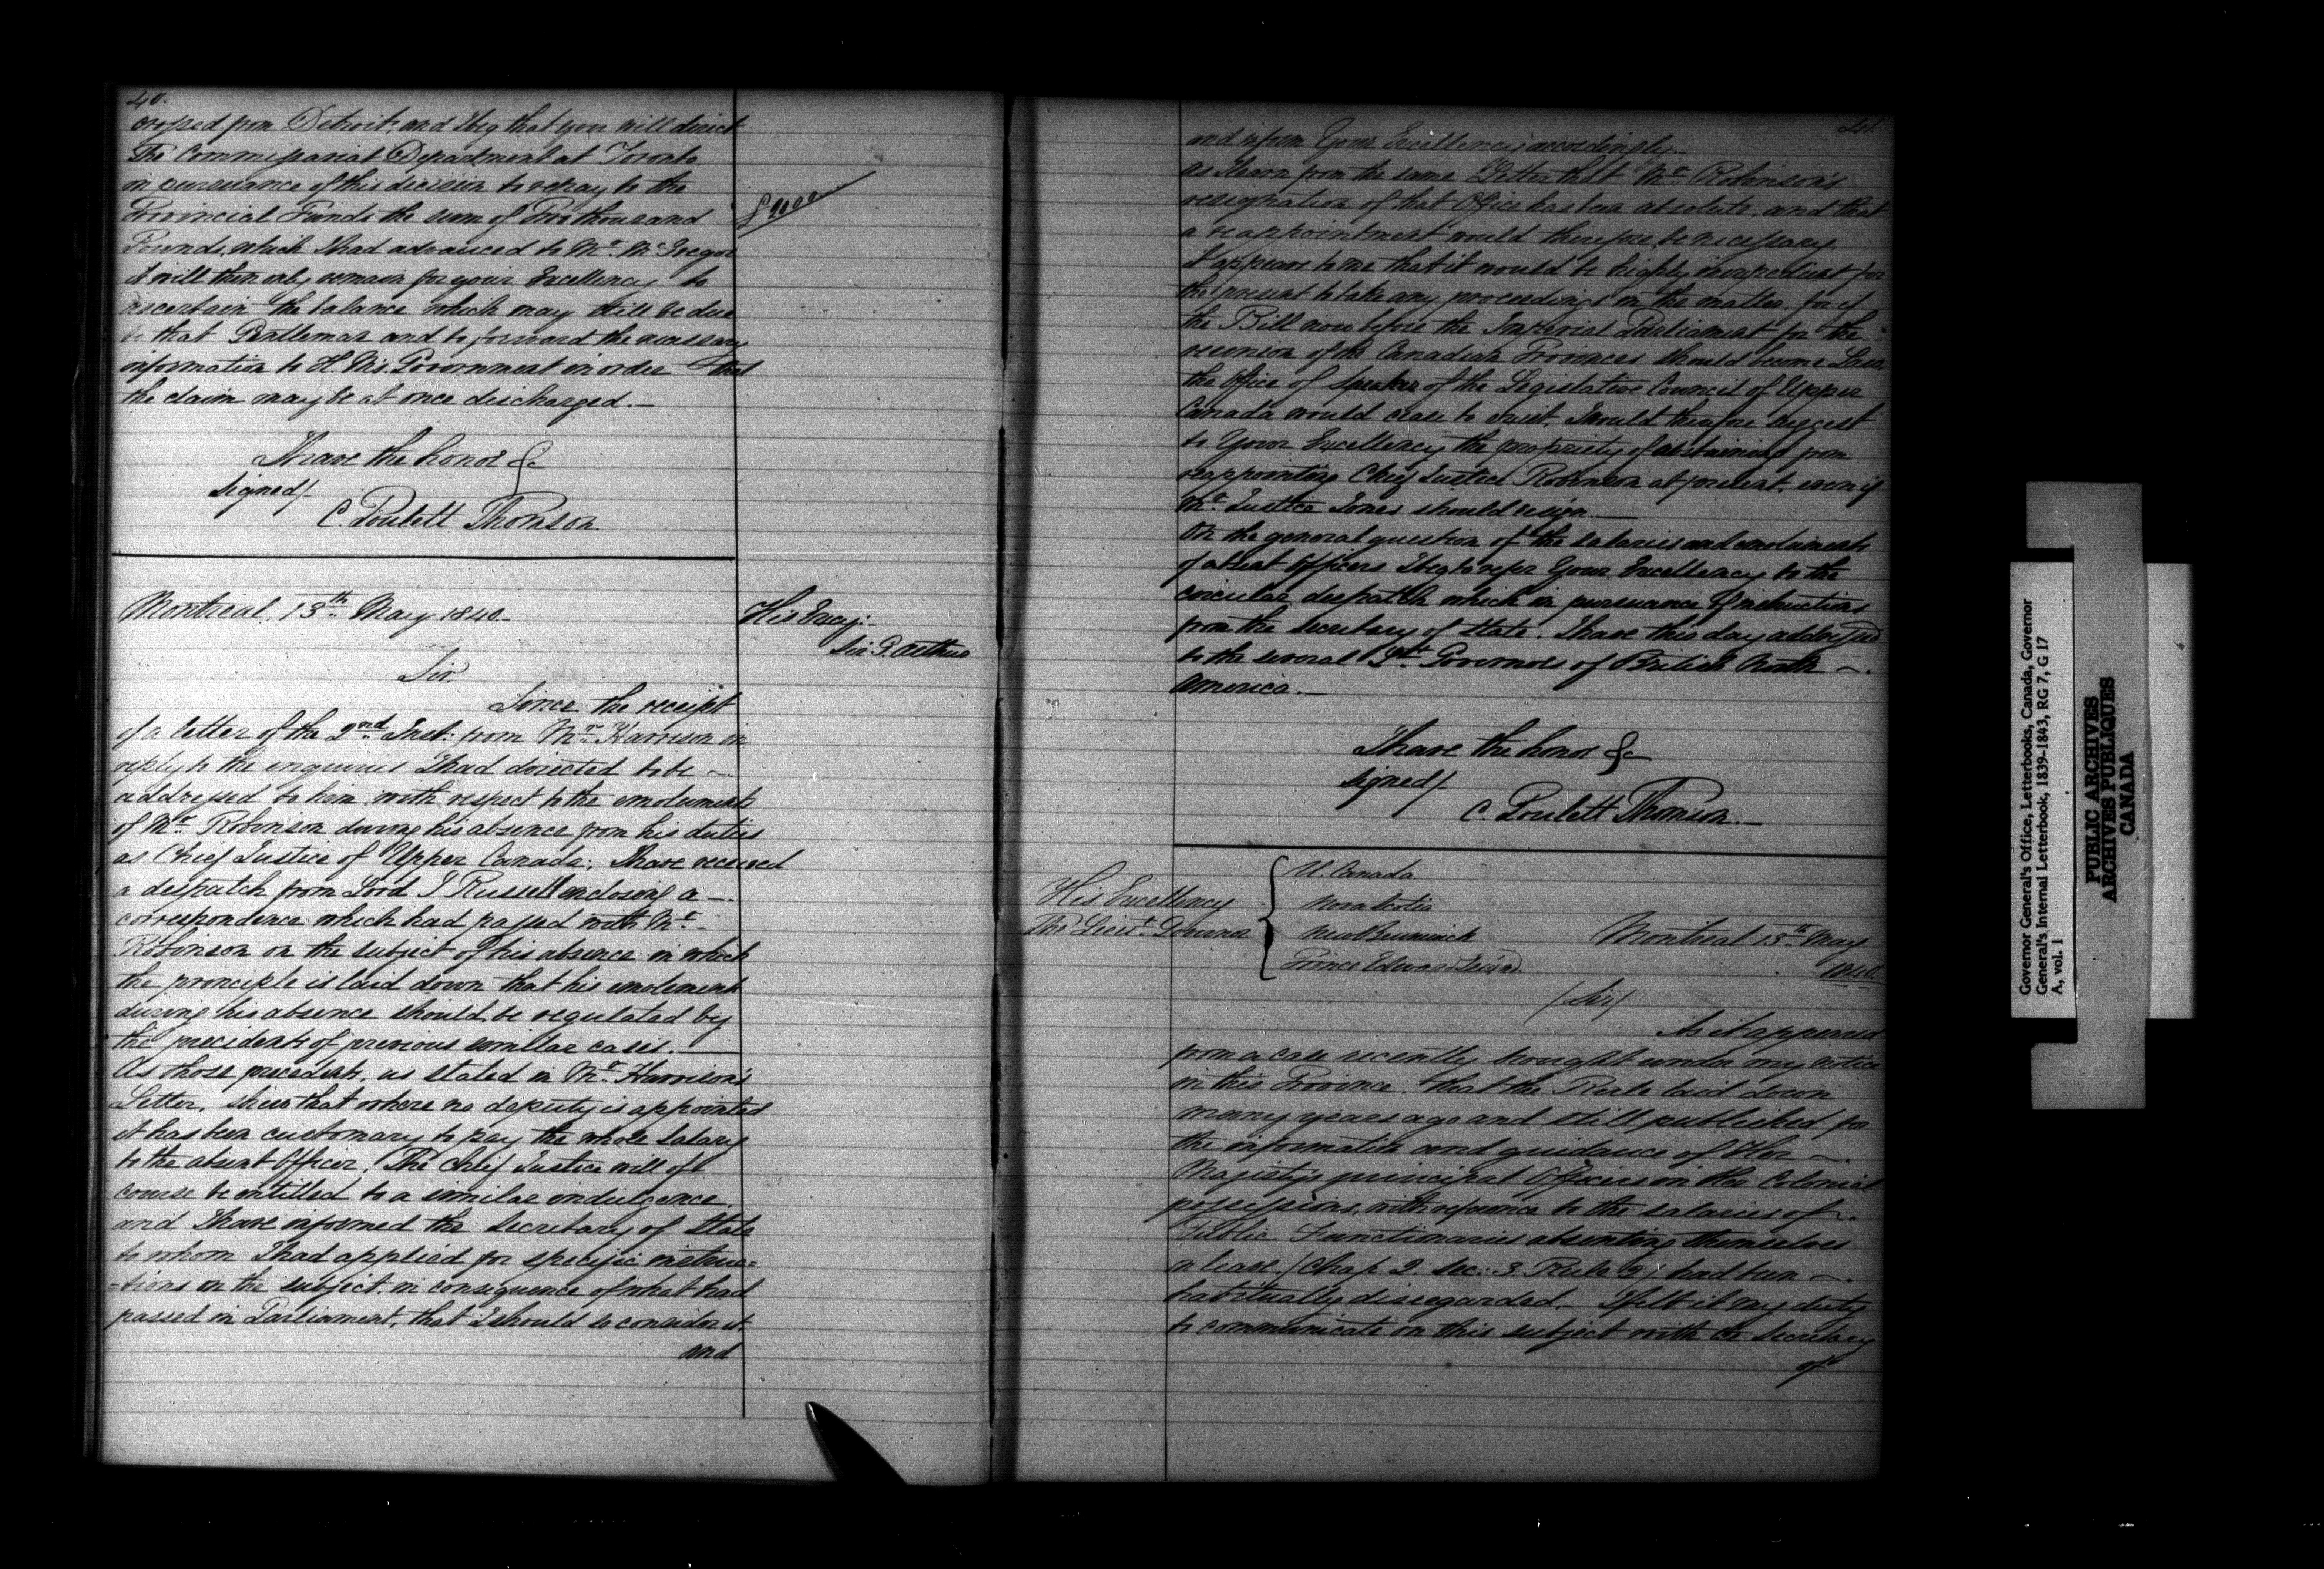 40.
crossed from Detroit, and I beg that you will direct
The Commissariat Department at Toronto
in pursuance of this decision to repay to the
Provincial Funds the sum of Two thousand
Pounds, which I had advanced to Mr. McGregor
it will then only remain for your Excellency to
ascertain the balance which may still be due
to that Gentleman and to forward the necessary
information to H. M's. Government in order that
the claim may be at once discharged.—
I have the honor &c
signed/-
C. Poulett Thomson
Montreal, 13th May 1840.
His Excy:
Sir G. Arthur
Sir.
Since the receipt
of a letter of the 2nd Inst: from Mr. Harrison in
reply to the inquiries I had directed to be —
addressed to him with respect to the emoluments
of Mr. Robinson during his absence from his duties
as Chief Justice of Upper Canada; I have received
a despatch from Lord J Russell enclosing a —
correspondence which had passed with Mr.
Robinson on the subject of his absence in which
the principle is laid down that his emoluments
during his absence should be regulated by
the precidents of previous similar cases.—
As those precedents, as stated in Mr. Harrison's
Letter, shew that where no deputy is appointed
it has been customary to pay the whole Salary
to the absent Officer, The Chief Justice will of
course be entitled to a similar indulgence
and I have informed the Secretary of State
to whom I had applied for specific instruc=
=tions on the subject in consequence of what had
passed in Parliament, that I should so consider it.
and
41.
and inform Your Excellency accordingly.—
as I learn from the same Letter that Mr. Robinson's
resignation of that Office has been absolute, and that
a reappointment would therefore be necessary
It appears to me that it would be highly inexpedient for
the present to take any proceedings in the matter. for if
the Bill now before the Imperial Parliament for the
reunion of the Canadian Provinces should become Law,
the Office of Speaker of the Legislative Council of Upper
Canada would cease to exist. I would therefore suggest
to Your Excellency the propriety of abstaining from
reappointing Chief Justice Robinson at present, even if
Mr. Justice Jones should resign.—
On the general question of the salaries and emoluments
of absent Officers I beg to refer Your Excellency to the
circular despatch which in pursuance of instructions
from the Secretary of State. I have this day addressed
to the several Lt. Governors of British North —.
America.—
I have the honor &c
signed/-
C. Poulett Thomson.—
His Excellency
The Lieut. Governor
U. Canada
Nova Scotia
New Brunswick
Prince Edward Island
Montreal 13th May
1840
/Sir/
As it appeared
from a case recently brought under my notice
in this Province, that the Rule laid down
many years ago and still published for
the information and guidance of Her —.
Majesty's principal Officers in the Colonial
possessions, with reference to the salaries of —.
Public Functionaries absenting themselves
on leave, (Chap 2. Sec: 3. Rule 2) had been —.
habitually disregarded.— I felt it my duty
to communicate on this subject with the Secretary
of
Governor General's Office, Letterbooks, Canada, Governor
General's Internal Letterbook, 1839-1843, RG 7, G 17
A, vol. 1
PUBLIC ARCHIVES
ARCHIVES PUBLIQUES
CANADA